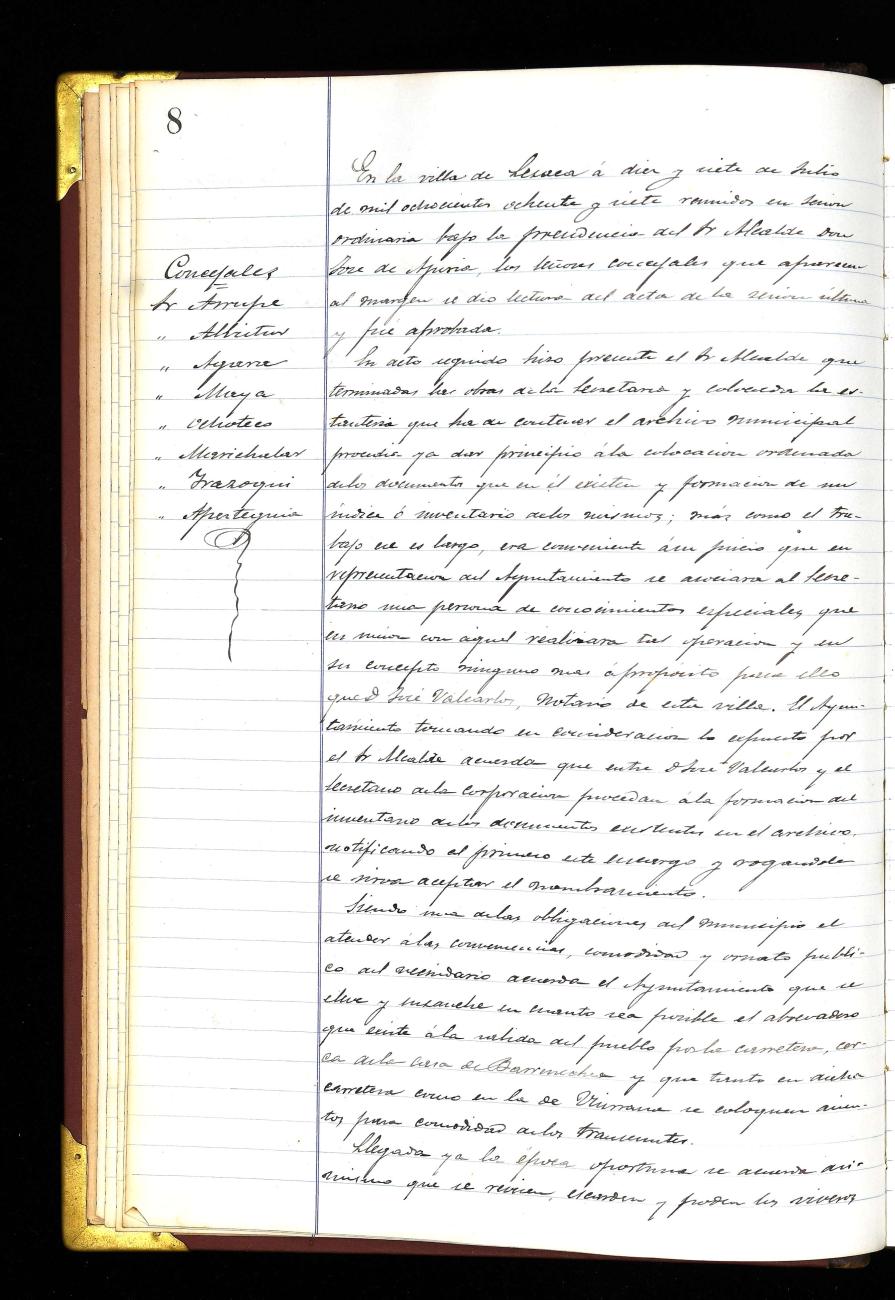 8
En la villa de Lesaca á diez y siete de Julio
de mil ochocientos ochenta y siete reunidos en sesion
ordinaria bajo la presidencia del Sr Alcalde Don
José de Apiria, los señores concejales que aparecen
al margen se dió lectura del acta de la sesion última
y fué aprobada.
Concejales
Sr Arrupe
" Albitur
" Agara
" Maya
" Ochoteco
" Marichalar
" Irazoqui
" Apezteguia
En acto seguido hizo presente el Sr Alcalde que
terminadas las obras de la Secretaria y colocada la es-
tanteria que ha de contener el archivo municipal
procedia ya dar principio á la colocacion ordenada
de los documentos que en él existen y formacion de un
índice ó inventario de los mismos; más como el tra-
bajo ese es largo, era conveniente á su juicio que en
representacion del Ayuntamiento se asociara al Secre-
tario una persona de conocimientos especiales, que
en union con aquel realizara tal operacion y en
su concepto ninguno mas á propósito para ello
que D José Valcarlos, Notario de esta villa. El Ayun-
tamiento tomando en consideracion lo expuesto por
el Sr Alcalde acuerda que entre D José Valcarlos y el
Secretario de la corporacion procedan á la formacion del
inventario de los documentos existentes en el archivo,
notificando al primero este encargo y rogandole
se sirva aceptar el nombramiento.
Siendo una de las obligaciones del municipio el
atender á las conveniencias, comodidad y ornato publi-
co del vecindario acuerda el Ayuntamiento que se
eleve y ensanche en cuanto sea posible el abrevadero
que existe á la salida del pueblo por la carretera, cer-
ca de la casa de Barrenechea y que tanto en dicha
carretera como en la de se coloquen asien-
tos para comodidad de los transeuntes.
Llegada ya la época oportuna se acuerda asi-
mismo que se revisen, escarden y poden los viveros